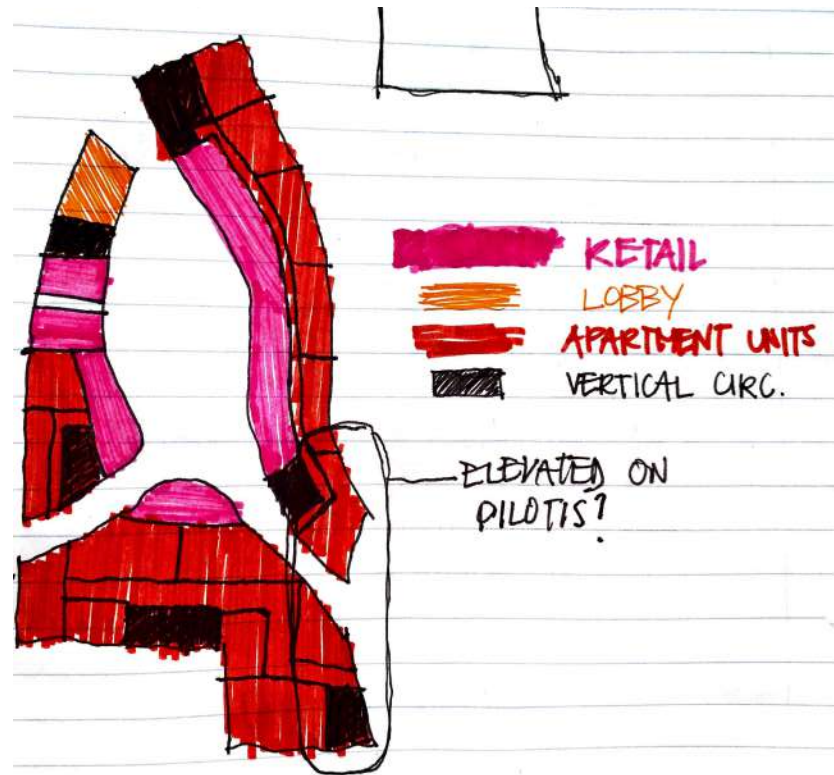 RETAIL
LOBBY
APARTMENT UNITS
VERTICAL CIRC.
ELEVATED ON
PILOTIS?